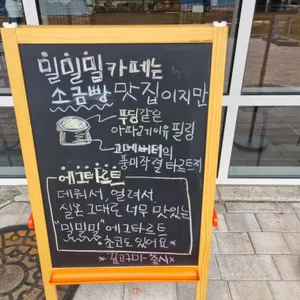 밀밀밀 카페는
소금빵 맛집이지만
푸딩같은
아파레이유 필링
고메버터의
풍미작렬 타르트지
에그타르트
데워서, 얼려서
실온 그대로 너무 맛있는
"밀밀밀" 에그타르트
초코도 있어요
출시